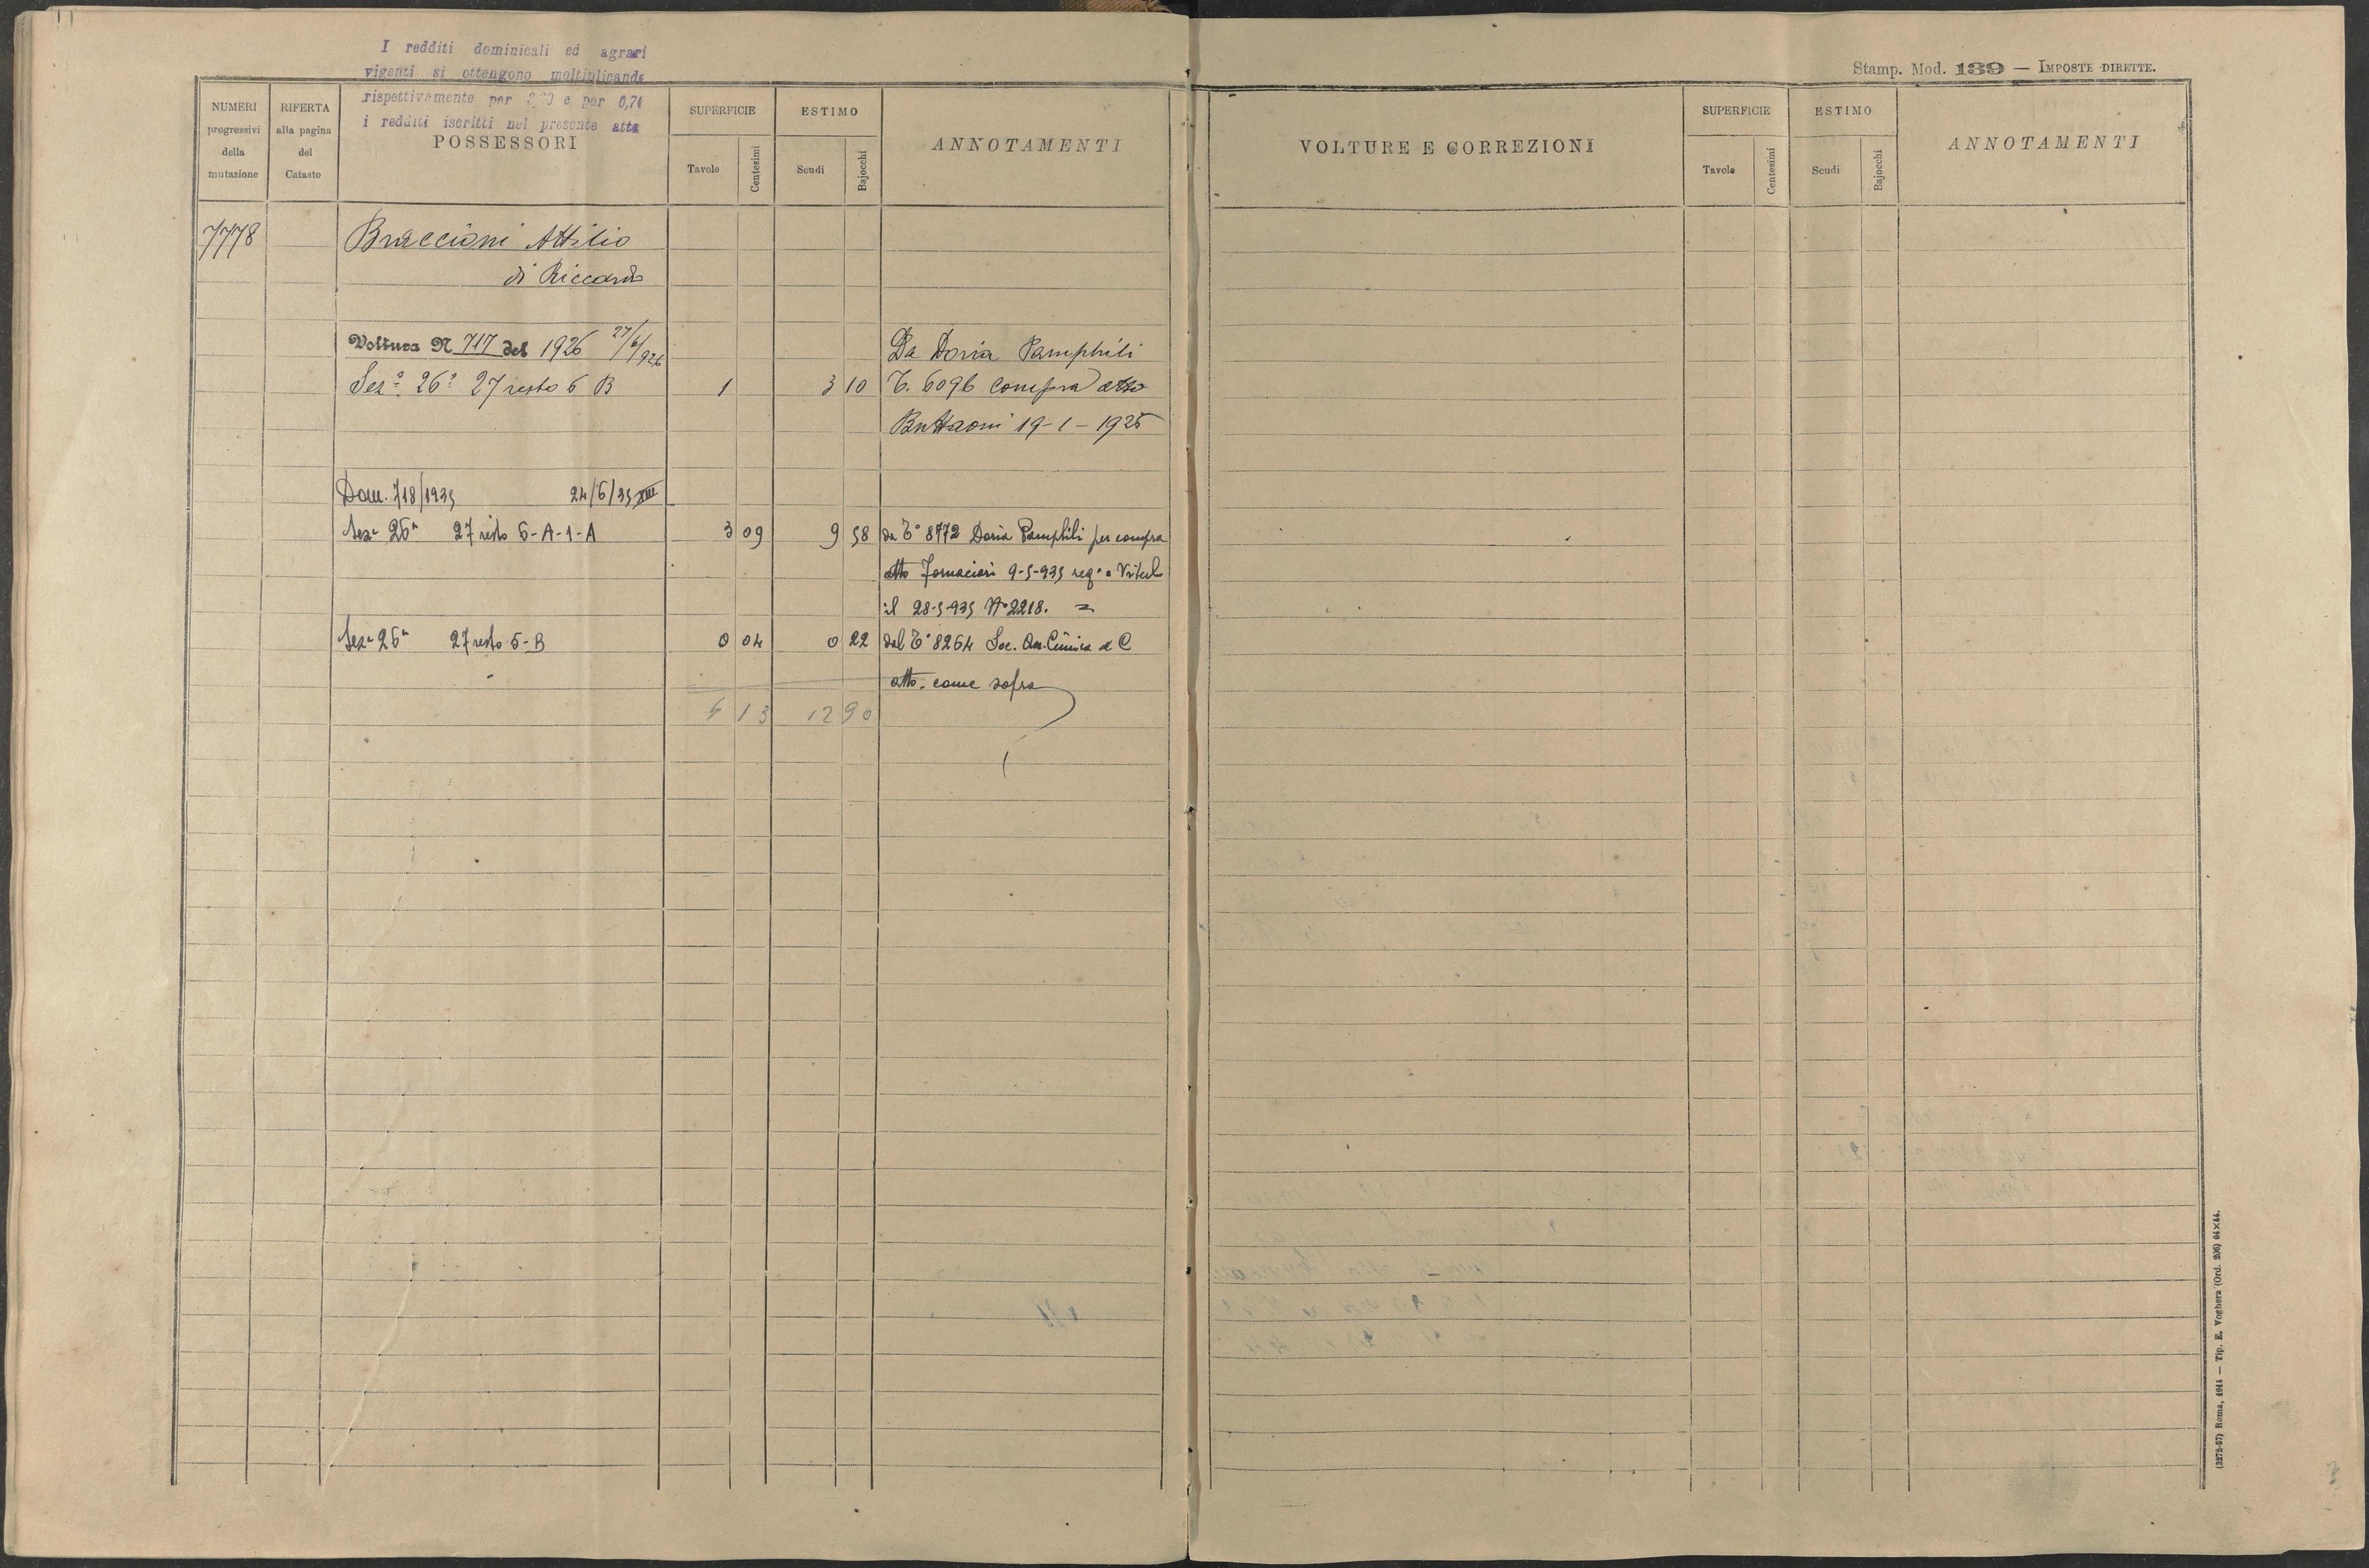 I redditi dominicali ed agrari
vigenti si ottengono moltiplicando
rispettivamente per 3,20 e per 0,74
i redditi iscritti nel presente atto
Stamp. Mod. 139 — IMPOSTE DIRETTE.
NUMERI progressivi della mutazione
RIFERTA alla pagina del Catasto
POSSESSORI
SUPERFICIE
Tavole
Centesimi
ESTIMO
Scudi
Bajocchi
ANNOTAMENTI
VOLTURE E CORREZIONI
SUPERFICIE
Tavole
Centesimi
ESTIMO
Scudi
Bajocchi
ANNOTAMENTI
7778 Braccioni Attilio
di Riccardo
Voltura N 717 del 1926 27/6/926 Da Doria Pamphili
Sezª 26ª 27 resto 6 B 1 3 10 T. 6096 compra atto
Buttaoni 19-1-1925
Dom. 718/1935 24/6/35 XIII
Sezª 26ª 27 resto 6-A-1-A 3 09 9 58 da T° 8772 Doria Pamphili per compra
atto Fornaciari 9-5-935 regº a
il 28-5-935 N° 2218. =
Sezª 26ª 27 resto 5-B 0 04 0 22 dal T° 8264 Soc. An. C
atto come sopra
4 13 12 90
(3272-57) Roma, 1914 — Tip. E. Voghera (Ord. 206) 64×44.